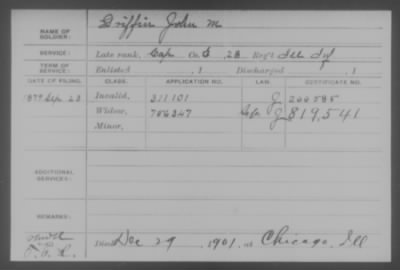 NAME OF SOLDIER: Griffin John M
SERVICE: Late rank, Cap Co. G, 23 Reg't Ill Inf
TERM OF SERVICE: Enlisted , 1 Discharged , 1
DATE OF FILING. CLASS. APPLICATION NO. LAW. CERTIFICATE NO.
1879 Sep 23 Invalid, 311101 G 266585
Widow, 756347 G 819,541
Minor,
ADDITIONAL SERVICES:
REMARKS:
Died Dec 29, 1901, at Chicago, Ill